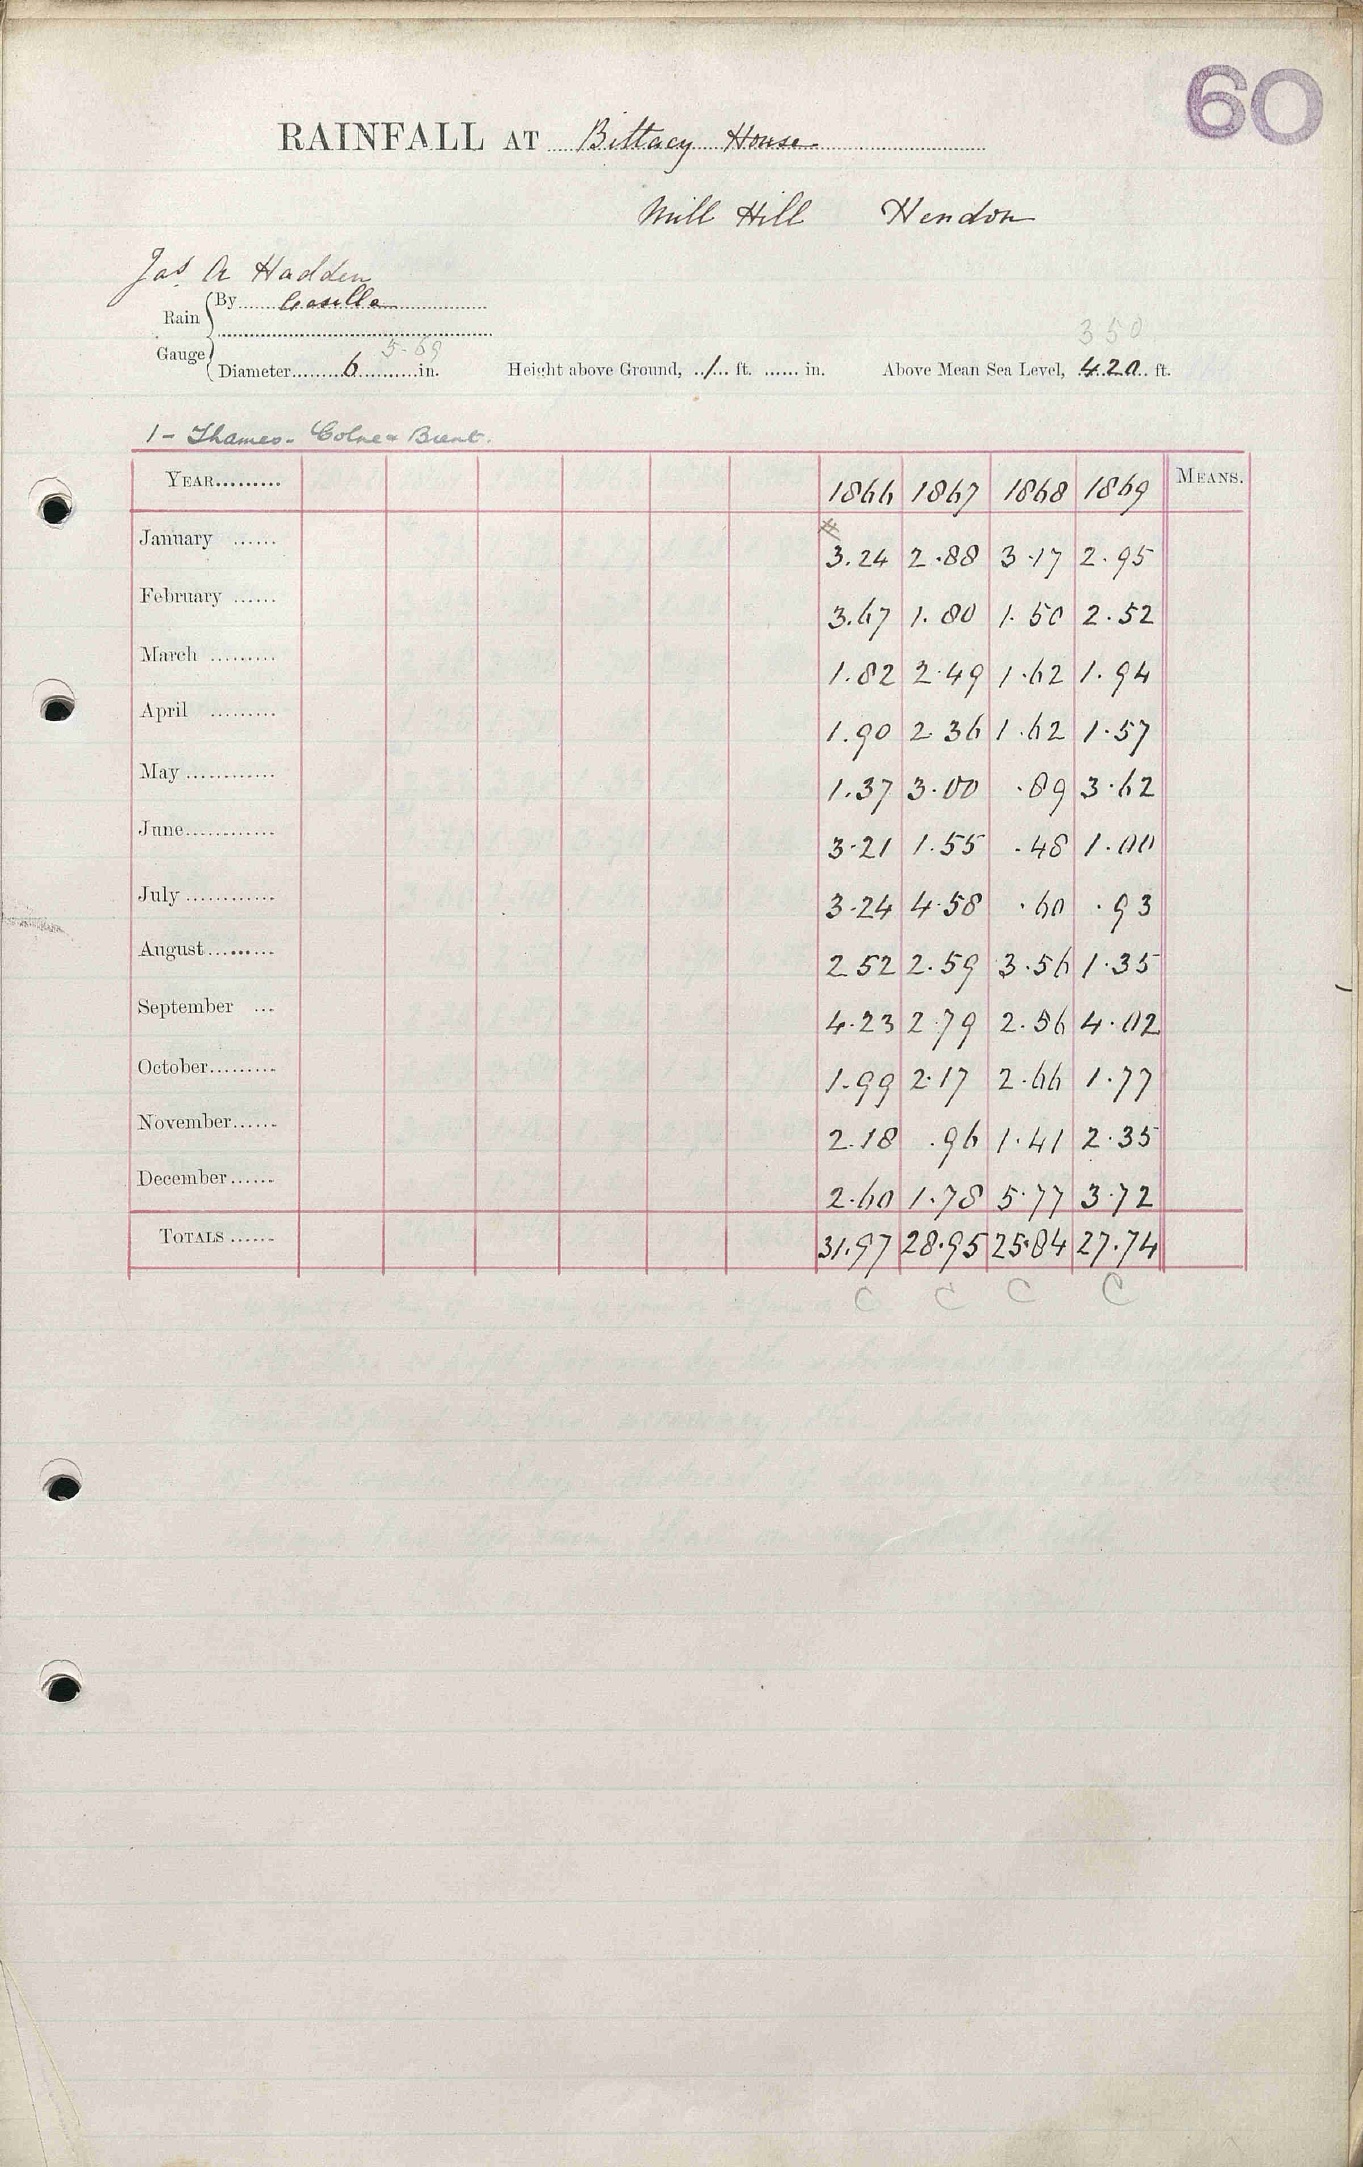 60
RAINFALL AT Bittacy House
Mill Hill Hendon
Jas. A Hadden
Rain Gauge { By Casella
5-69
350
Diameter 6 in. Height above Ground, 1 ft. ...... in. Above Mean Sea Level, 420 ft.
1 - Thames - Colne & Brent.
YEAR......... 1866 1867 1868 1869 MEANS.
January ...... 3.24 2.88 3.17 2.95
February ...... 3.67 1.80 1.50 2.52
March ......... 1.82 2.49 1.62 1.94
April ......... 1.90 2.36 1.62 1.57
May ............ 1.37 3.00 .89 3.62
June............ 3.21 1.55 .48 1.00
July ............ 3.24 4.58 .60 .93
August......... 2 52 2.59 3.56 1.35
September ... 4.23 2.79 2.56 4.02
October......... 1.99 2.17 2.66 1.77
November...... 2.18 .96 1.41 2.35
December...... 2.60 1.78 5.77 3.72
TOTALS ...... 31.97 28.95 25.84 27.74
C C C C